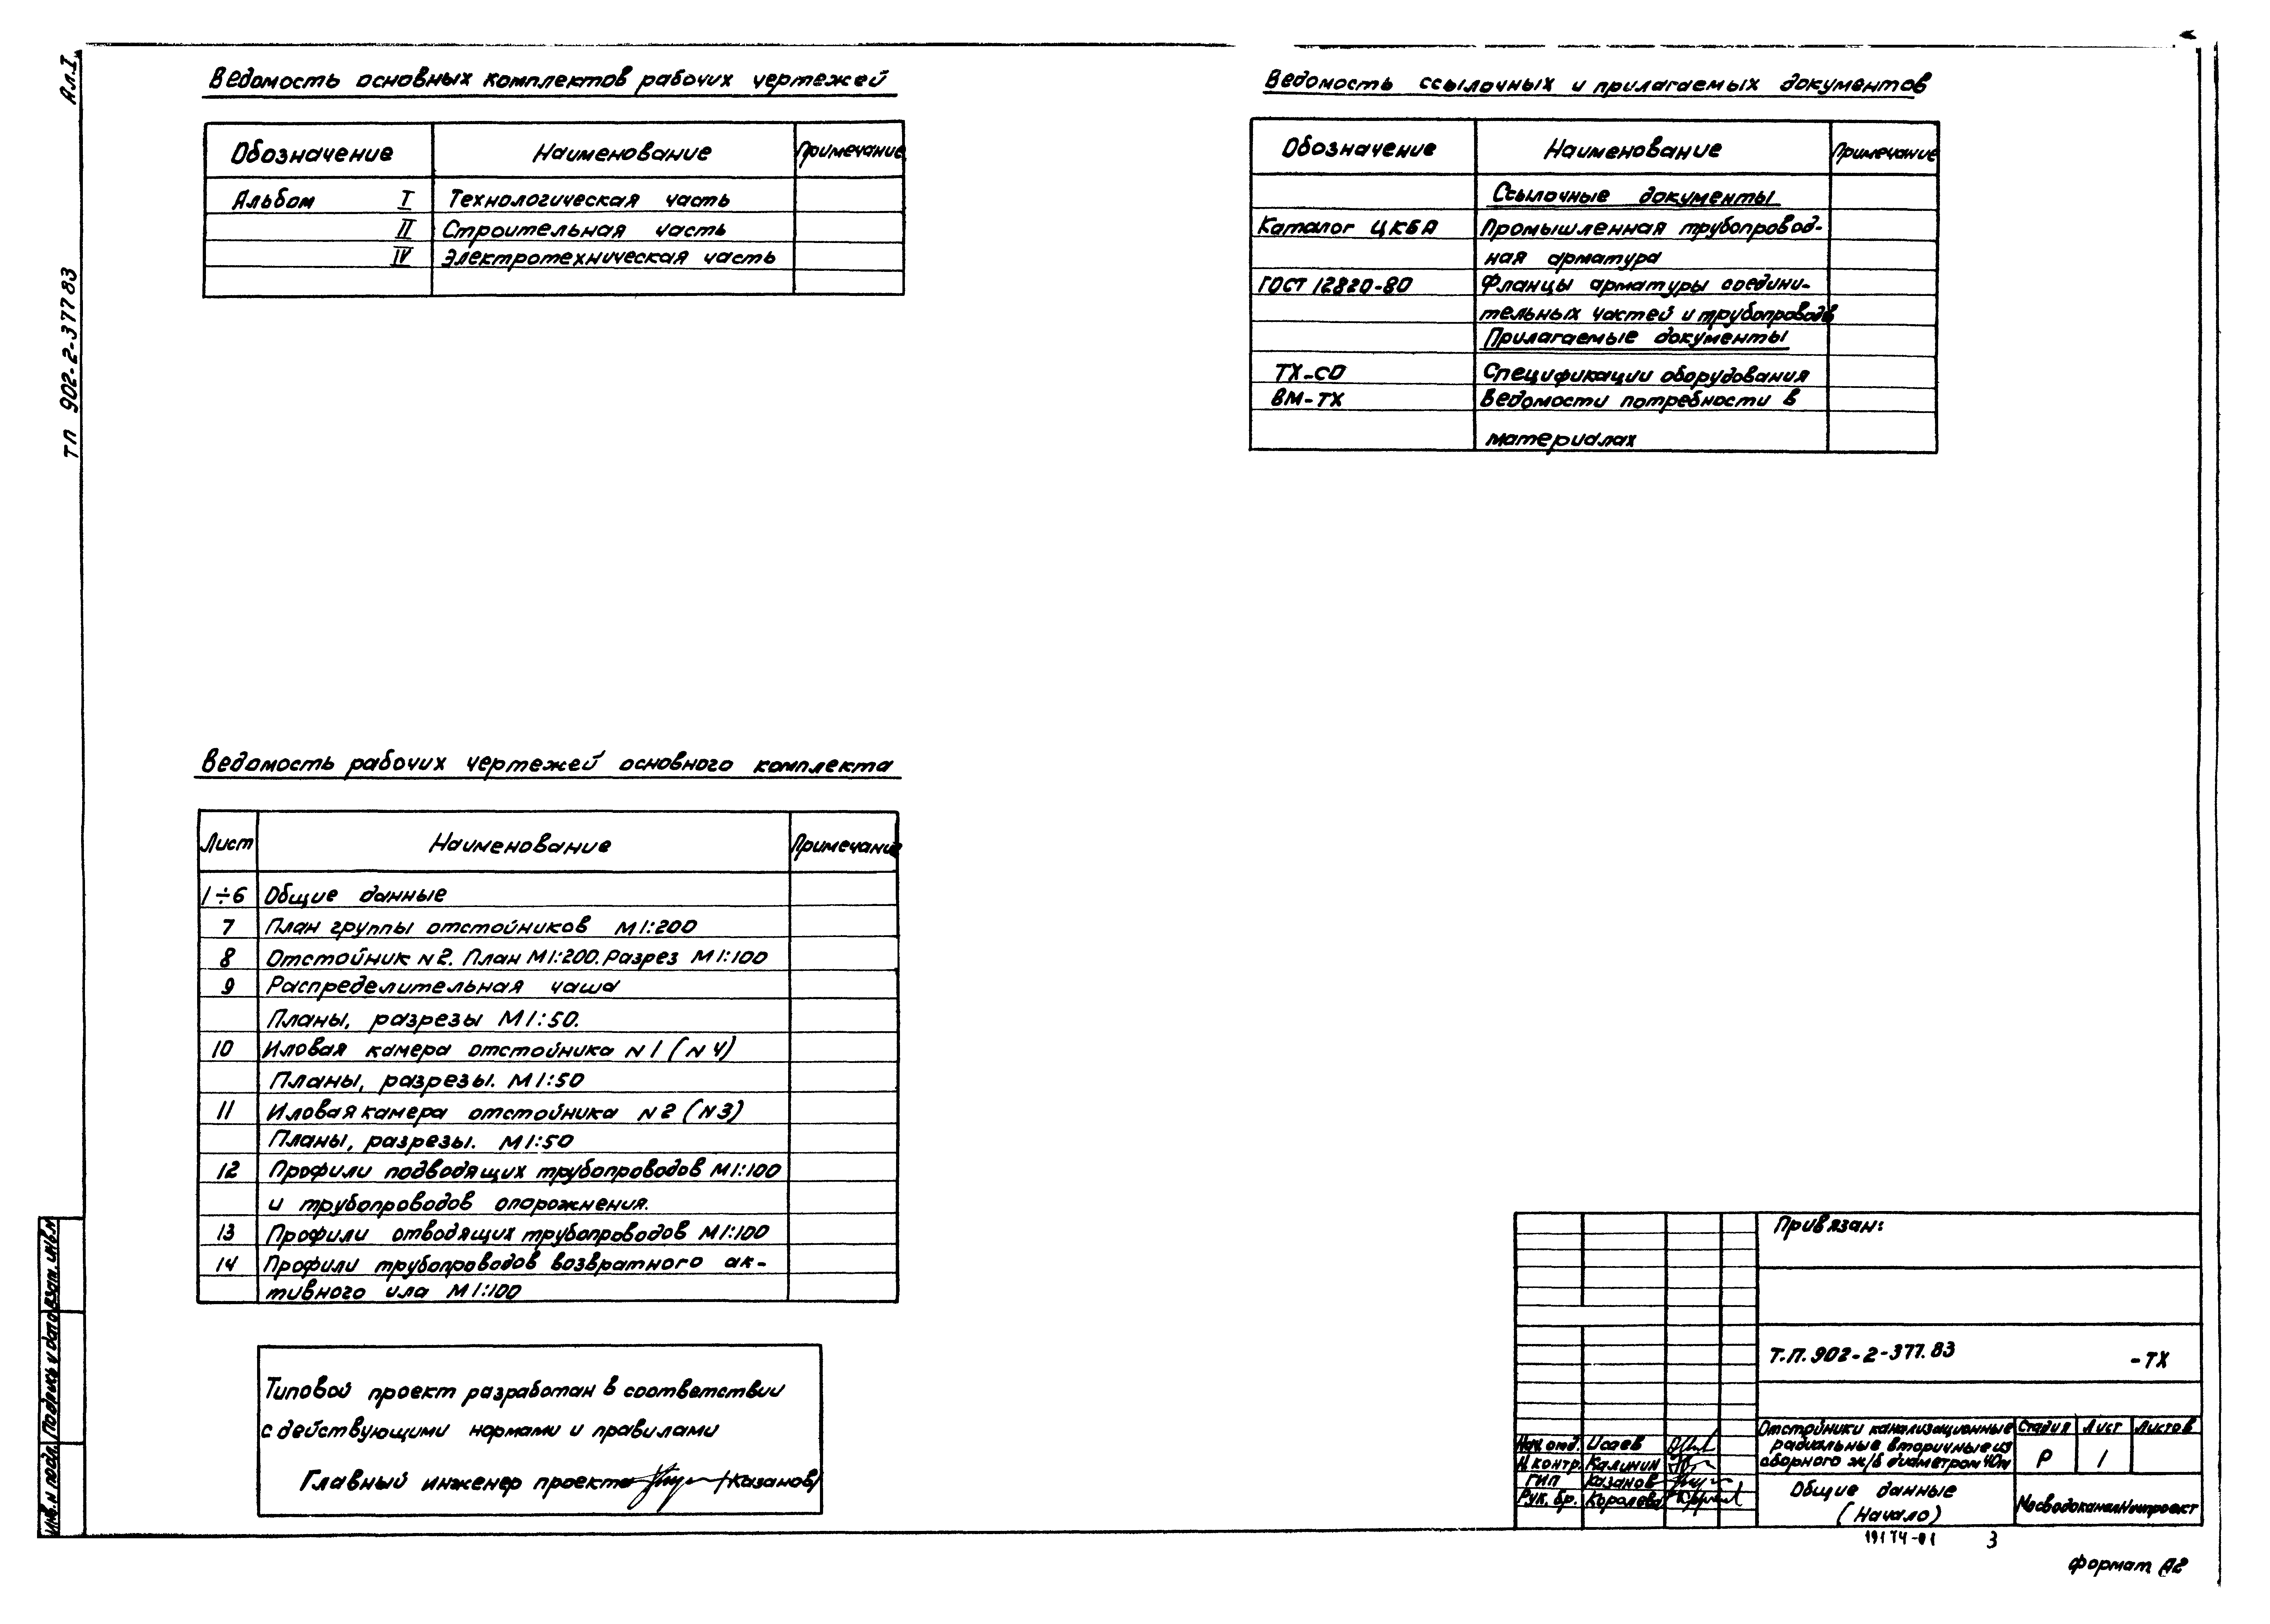 Ал.I
ТП 902-2-377 83
Ведомость основных комплектов рабочих чертежей
Обозначение Наименование Примечание
Альбом I Технологическая часть
II Строительная часть
IV Электротехническая часть
Ведомость ссылочных и прилагаемых документов
Обозначение Наименование Примечание
Ссылочные документы
Каталог ЦКБА Промышленная трубопровод-
ная арматура
ГОСТ 12820-80 Фланцы арматуры соедини-
тельных частей и трубопроводов
Прилагаемые документы
ТХ-СО Спецификации оборудования
ВМ-ТХ Ведомости потребности в
материалах
Ведомость рабочих чертежей основного комплекта
Лист Наименование Примечание
1÷6 Общие данные
7 План группы отстойников М1:200
8 Отстойник N2. План М1:200. Разрез М1:100
9 Распределительная чаша
Планы, разрезы М1:50.
10 Иловая камера отстойника N1 (N4)
Планы, разрезы. М1:50
11 Иловая камера отстойника N2 (N3)
Планы, разрезы. М1:50
12 Профили подводящих трубопроводов М1:100
и трубопроводов опорожнения.
13 Профили отводящих трубопроводов М1:100
14 Профили трубопроводов возвратного ак-
тивного ила М1:100
Типовой проект разработан в соответствии
с действующими нормами и правилами
Главный инженер проекта /Казанов/
Инв.N подл. Подпись и дата Взам. инв.N
Привязан:
Т.П. 902-2-377.83 -ТХ
Отстойники канализационные
радиальные вторичные из
сборного ж/б диаметром 40м
Стадия Лист Листов
Р 1
Нач. отд. Исаев
Н. контр. Калинин
ГИП Казанов
Рук. бр. Королева
Общие данные
(Начало)
МосводоканалНИИпроект
19174-01 3
формат А2